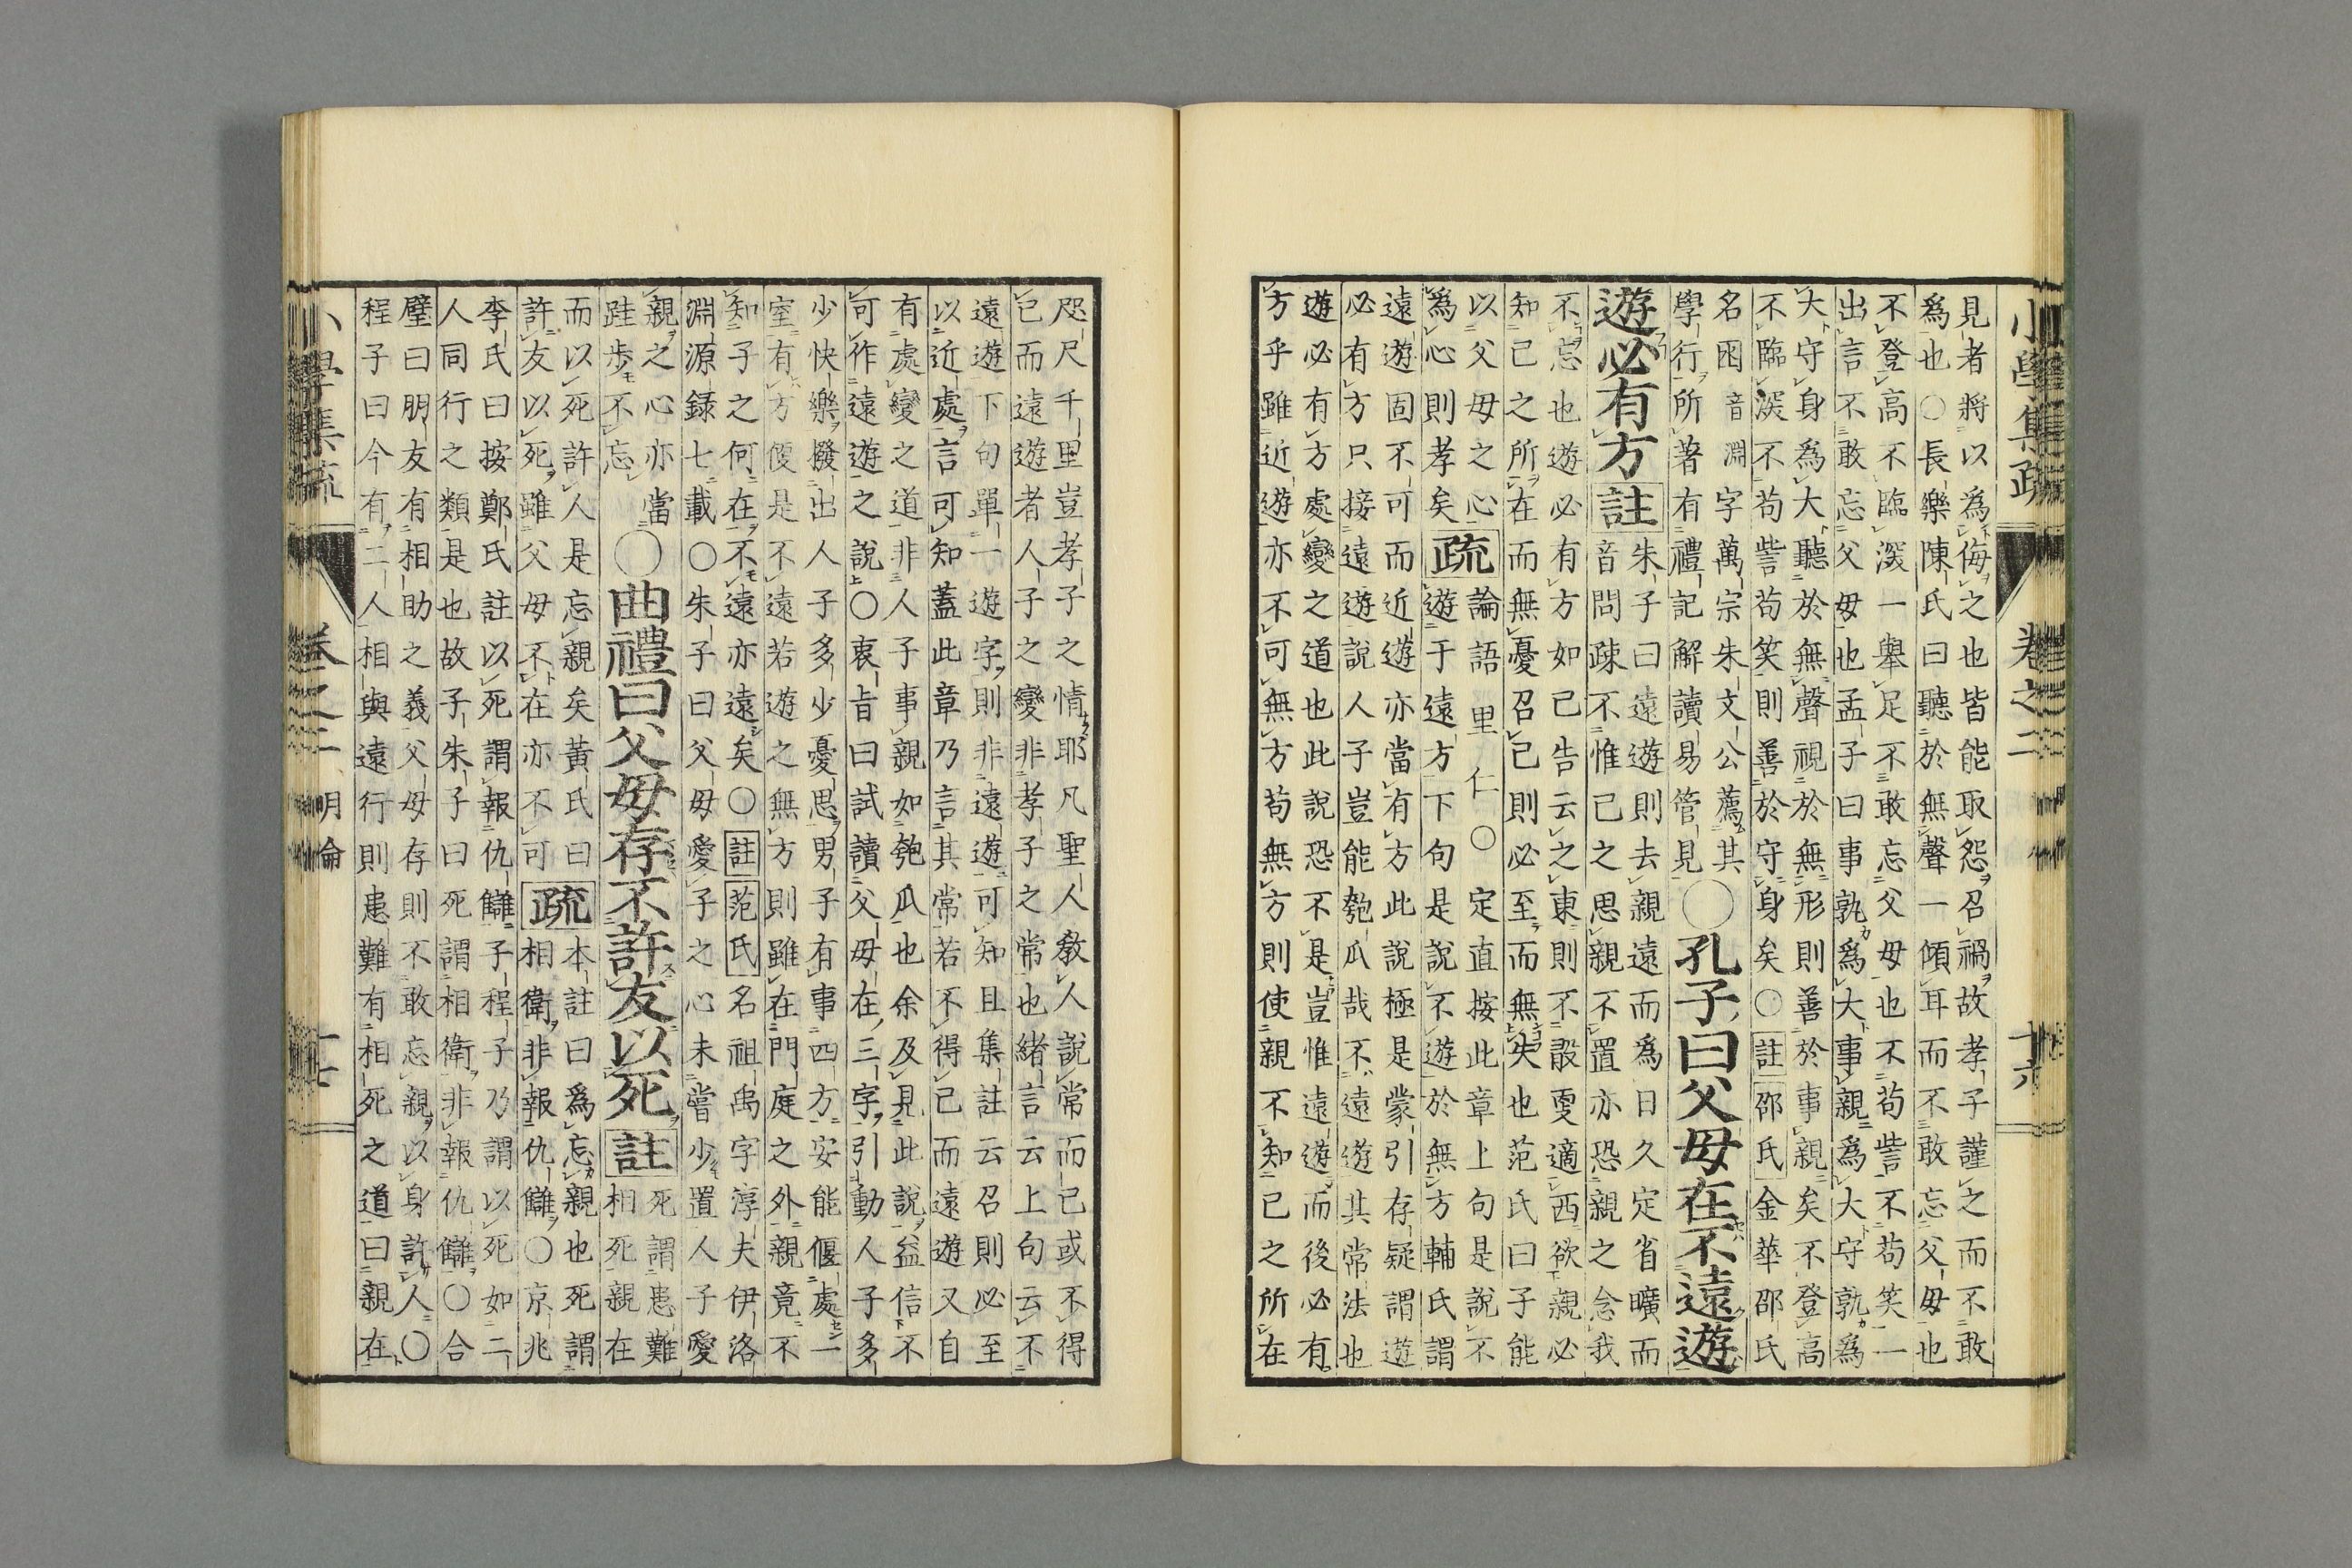 小學集疏 卷之二 十六
見者將以爲侮之也皆能取怨召禍故孝子謹之而不敢
爲也○長樂陳氏曰聽於無聲一傾耳而不敢忘父母也
不登高不臨深一舉足不敢忘父母也不苟訾不苟笑一
出言不敢忘父母也孟子曰事孰爲大事親爲大守孰爲
大守身爲大聽於無聲視於無形則善於事親矣不登高
不臨深不苟訾苟笑則善於守身矣○註邵氏金華邵氏
名囦音淵字萬宗朱文公薦其
學行所著有禮記解讀易管見
○孔子曰父母在不遠遊
遊必有方註
朱子曰遠遊則去親遠而爲日久定省曠而
音問疎不惟己之思親不置亦恐親之念我
不忘也遊必有方如己告云之東則不敢更適西欲親必
知己之所在而無憂召己則必至而無失也范氏曰子能
以父母之心
爲心則孝矣
疏
論語里仁○定直按此章上句是說不
遊于遠方下句是說不遊於無方輔氏謂
遠遊固不可而近遊亦當有方此說極是蒙引存疑謂遊
必有方只接遠遊說人子豈能匏瓜哉不遠遊其常法也
遊必有方處變之道也此說恐不是豈惟遠遊而後必有
方乎雖近遊亦不可無方苟無方則使親不知己之所在
咫尺千里豈孝子之情耶凡聖人敎人說常而已或不得
已而遠遊者人子之變非孝子之常也緒言云上句云不
遠遊下句單一遊字則非遠遊可知且集註云召則必至
以近處言可知蓋此章乃言其常若不得已而遠遊又自
有處變之道非人子事親如匏瓜也余及見此說益信不
可作遠遊之說○衷旨曰試讀父母在三字引動人子多
少快樂撥出人子多少憂思男子有事四方安能偃處一
室有方便是不遠若遊之無方則雖在門庭之外親竟不
知子之何在不遠亦遠矣○註范氏名祖禹字淳夫伊洛
淵源録七載○朱子曰父母愛子之心未嘗少置人子愛
親之心亦當
跬歩不忘
○曲禮曰父母存不許友以死註
死謂患難
相死親在
而以死許人是忘親矣黃氏曰
許友以死雖父母不在亦不可
疏
本註曰爲忘親也死謂
相衛非報仇讎○京兆
李氏曰按鄭氏註以死謂報仇讎子程子乃謂以死如二
人同行之類是也故子朱子曰死謂相衛非報仇讎○合
璧曰朋友有相助之義父母存則不敢忘親以身許人○
程子曰今有二人相與遠行則患難有相死之道曰親在
小學集疏 卷之二 明倫 十七